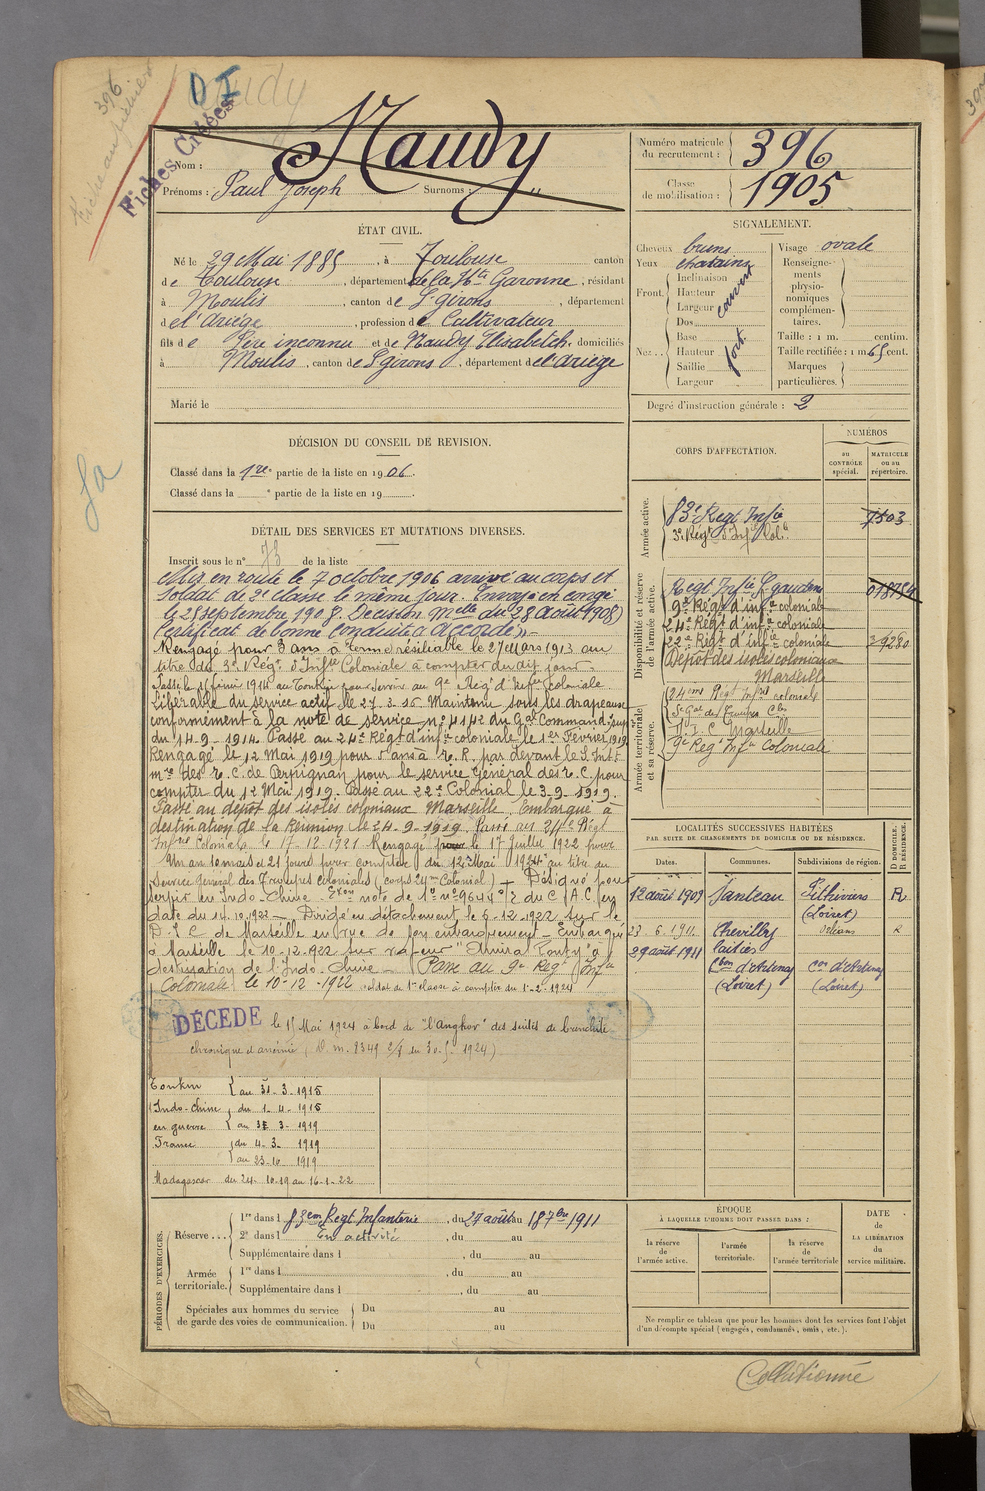 396
Fiches Créées
D I
Naudy
Nom :
Prénoms : Paul Joseph Surnoms : "
ÉTAT CIVIL.
Né le 29 Mai 1885, à Toulouse canton
de Toulouse, département de la Hte Garonne, résidant
à Moulis, canton de St Girons, département
de l'Ariège, profession de Cultivateur
fils de Père inconnu et de Naudy Elisabetch. domiciliés
à Moulis, canton de St girons, département de l'Ariège
Marié le
DÉCISION DU CONSEIL DE REVISION.
Classé dans la 1re partie de la liste en 1906.
Classé dans la e partie de la liste en 19
DÉTAIL DES SERVICES ET MUTATIONS DIVERSES.
Inscrit sous le n° 73 de la liste
Mis en route le 7 octobre 1906 arrivé au corps et
Soldat de 2e classe le même jour. Envoyé en congé
le 25 septembre 1908. Décision Mlle du 28 Août 1908)
Certificat de bonne conduite "Accordé"
Rengagé pour 3 ans à terme résiliable le 27 Mars 1913 au
titre du 3e Régt d'Infie Coloniale à compter du dit jour.
Passé le 16 février 1914 au Tonkin pour servir au 9e Régt d'Infie coloniale.
Libérable du service actif le 27.3.16 Maintenu sous les drapeaux
conformément à la note de service n° 4142 du Gal Command. Sup
du 14-9-1914 Passé au 24e Régt d'infie coloniale le 1er Février 1919
Rengagé le 12 Mai 1919 pour 3 ans à R. par devant le S. Int.
mre des T.C. de Perpignan pour le service général des T.C. pour
compter du 12 Mai 1919. Passé au 22e Colonial le 3-9-1919.
Passé au dépôt des isolés coloniaux Marseille. Embarqué à
destination de la Réunion le 24-9-1919 Passé au 24e Régt
Infrie Coloniale le 17-12-1921 Rengagé le 17 Juillet 1922 pour
Un an 10 mois et 21 jours pour compter du 12 Mai 1924 au titre du
Service général des Troupes coloniales (corps 24me Colonial) + Désigné pour
servir en Indo-Chine. note de n° 9644 2 du C.A.C. en
date du 14.10.1922 – Dirigé en détachement le 6-12-1922 sur le
D.I.C de Marseille en vue de son embarquement – Embarqué
à Marseille le 10.12.1922 sur vapeur "Amiral Ponty" à
destination de l'Indo-Chine – Passé au 9e Régt Infie
Coloniale le 10-12-1922 soldat de 1re classe à compter du 1-2-1924
DÉCÉDÉ le 15 Mai 1924 à bord de "l'angkor" des suites de bronchite
chronique et anémie (D.m. 8349 2/8 du 30.5.1924)
Tonkin { au 31-3-1915
Indo-chine } du 1-4-1915
en guerre { au 3-3-1919
France } du 4-3-1919
} au 23-10-1919
Madagascar du 24-10-19 au 16-1-22
PÉRIODES D'EXERCICES.
Réserve...
1re dans l 83em Régt Infanterie, du 27 août au 18 7bre 1911
2e dans l En activité, du au
Supplémentaire dans l, du au
Armée territoriale.
1re dans l, du au
Supplémentaire dans l, du au
Spéciales aux hommes du service
de garde des voies de communication.
Du au
Du au
Numéro matricule
du recrutement : 396
Classe
de mobilisation : 1905
SIGNALEMENT.
Cheveux bruns
Yeux chatains
Front. Inclinaison
Hauteur
Largeur
couvert
Nez.. Dos
Base
Hauteur
Saillie
Largeur
fort.
Visage ovale
Renseignements
physionomiques
complémentaires.
Taille : 1 m. centim.
Taille rectifiée : 1 m 65 cent.
Marques
particulières.
Degré d'instruction générale : 2
CORPS D'AFFECTATION.
NUMÉROS
au CONTRÔLE spécial.
MATRICULE ou au répertoire.
Armée active.
83e Régt Infie 7503
3e Régt d'Infie Colle
Disponibilité et réserve
de l'armée active.
Régt Infie St gaudens
9e Régt d'infie coloniale
24e Régt d'infie coloniale
22e Régt d'infie coloniale 29280
Dépôt des isolés coloniaux
Marseille
Armée territoriale
et sa réserve.
24eme Régt Infie coloniale
Sce Gal des Troupes Cles
D.I.C Marseille
9e Régt Infie Coloniale
LOCALITÉS SUCCESSIVES HABITÉES
PAR SUITE DE CHANGEMENTS DE DOMICILE OU DE RÉSIDENCE.
Dates. Communes. Subdivisions de région. D DOMICILE. R RÉSIDENCE.
12 août 1909 Janteau Pithiviers R
(Loiret)
23.6.1911 Chevilly Orléans R
29 août 1911
Cbon d'Artenay Con d'Artenay
(Loiret) (Loiret)
ÉPOQUE
À LAQUELLE L'HOMME DOIT PASSER DANS :
la réserve
de
l'armée active.
l'armée
territoriale.
la réserve
de
l'armée territoriale
DATE
de
LA LIBÉRATION
du
service militaire.
Ne remplir ce tableau que pour les hommes dont les services font l'objet
d'un décompte spécial (engagés, condamnés, omis, etc.).
Collationné